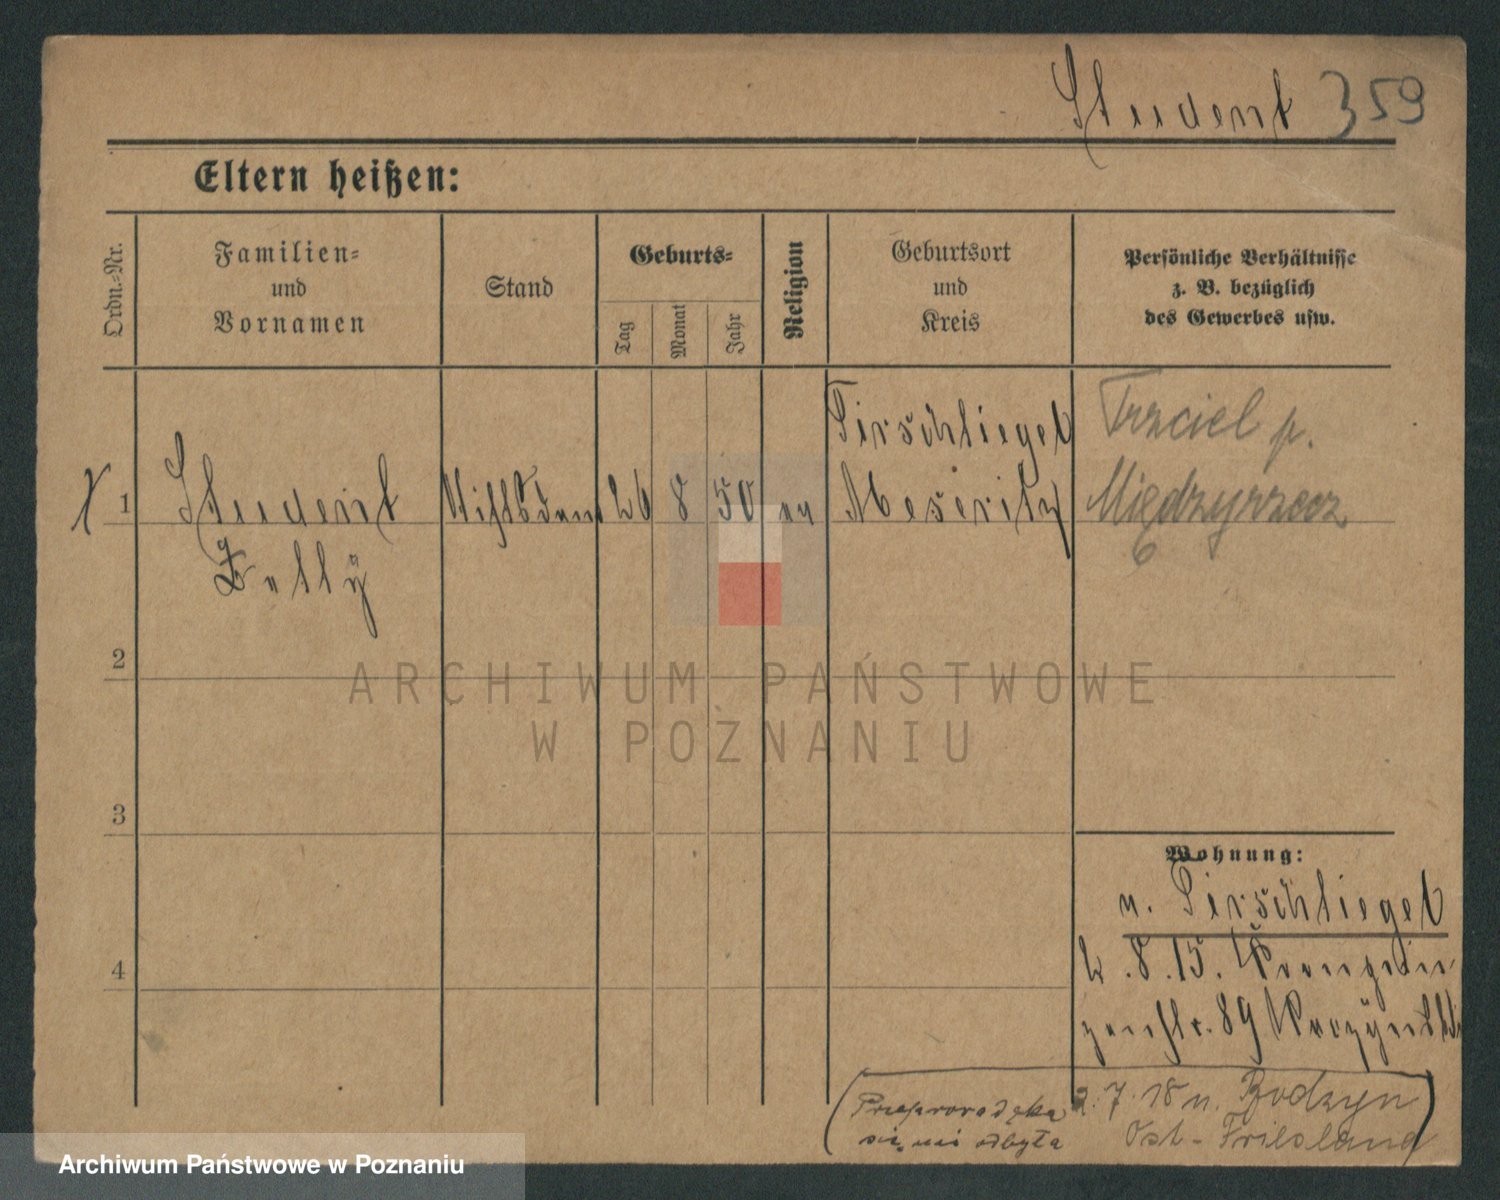 Student 359
Eltern heißen:
Ordn.-Nr.
Familien-
und
Vornamen
Stand
Geburts-
Tag
Monat
Jahr
Religion
Geburtsort
und
Kreis
Persönliche Verhältnisse
z. B. bezüglich
des Gewerbes usw.
Tirschtiegel
Trzciel p.
1 Student 26 8 50 Meseritz
Międzyrzecz
2
3
4
ARCHIWUM PAŃSTWOWE
W POZNANIU
Wohnung:
n. Tirschtiegel
2.8.15.
str. 89
Przeprowadzka 2.7.18 n.
się nie odbyła Ost-Friesland
Archiwum Państwowe w Poznaniu